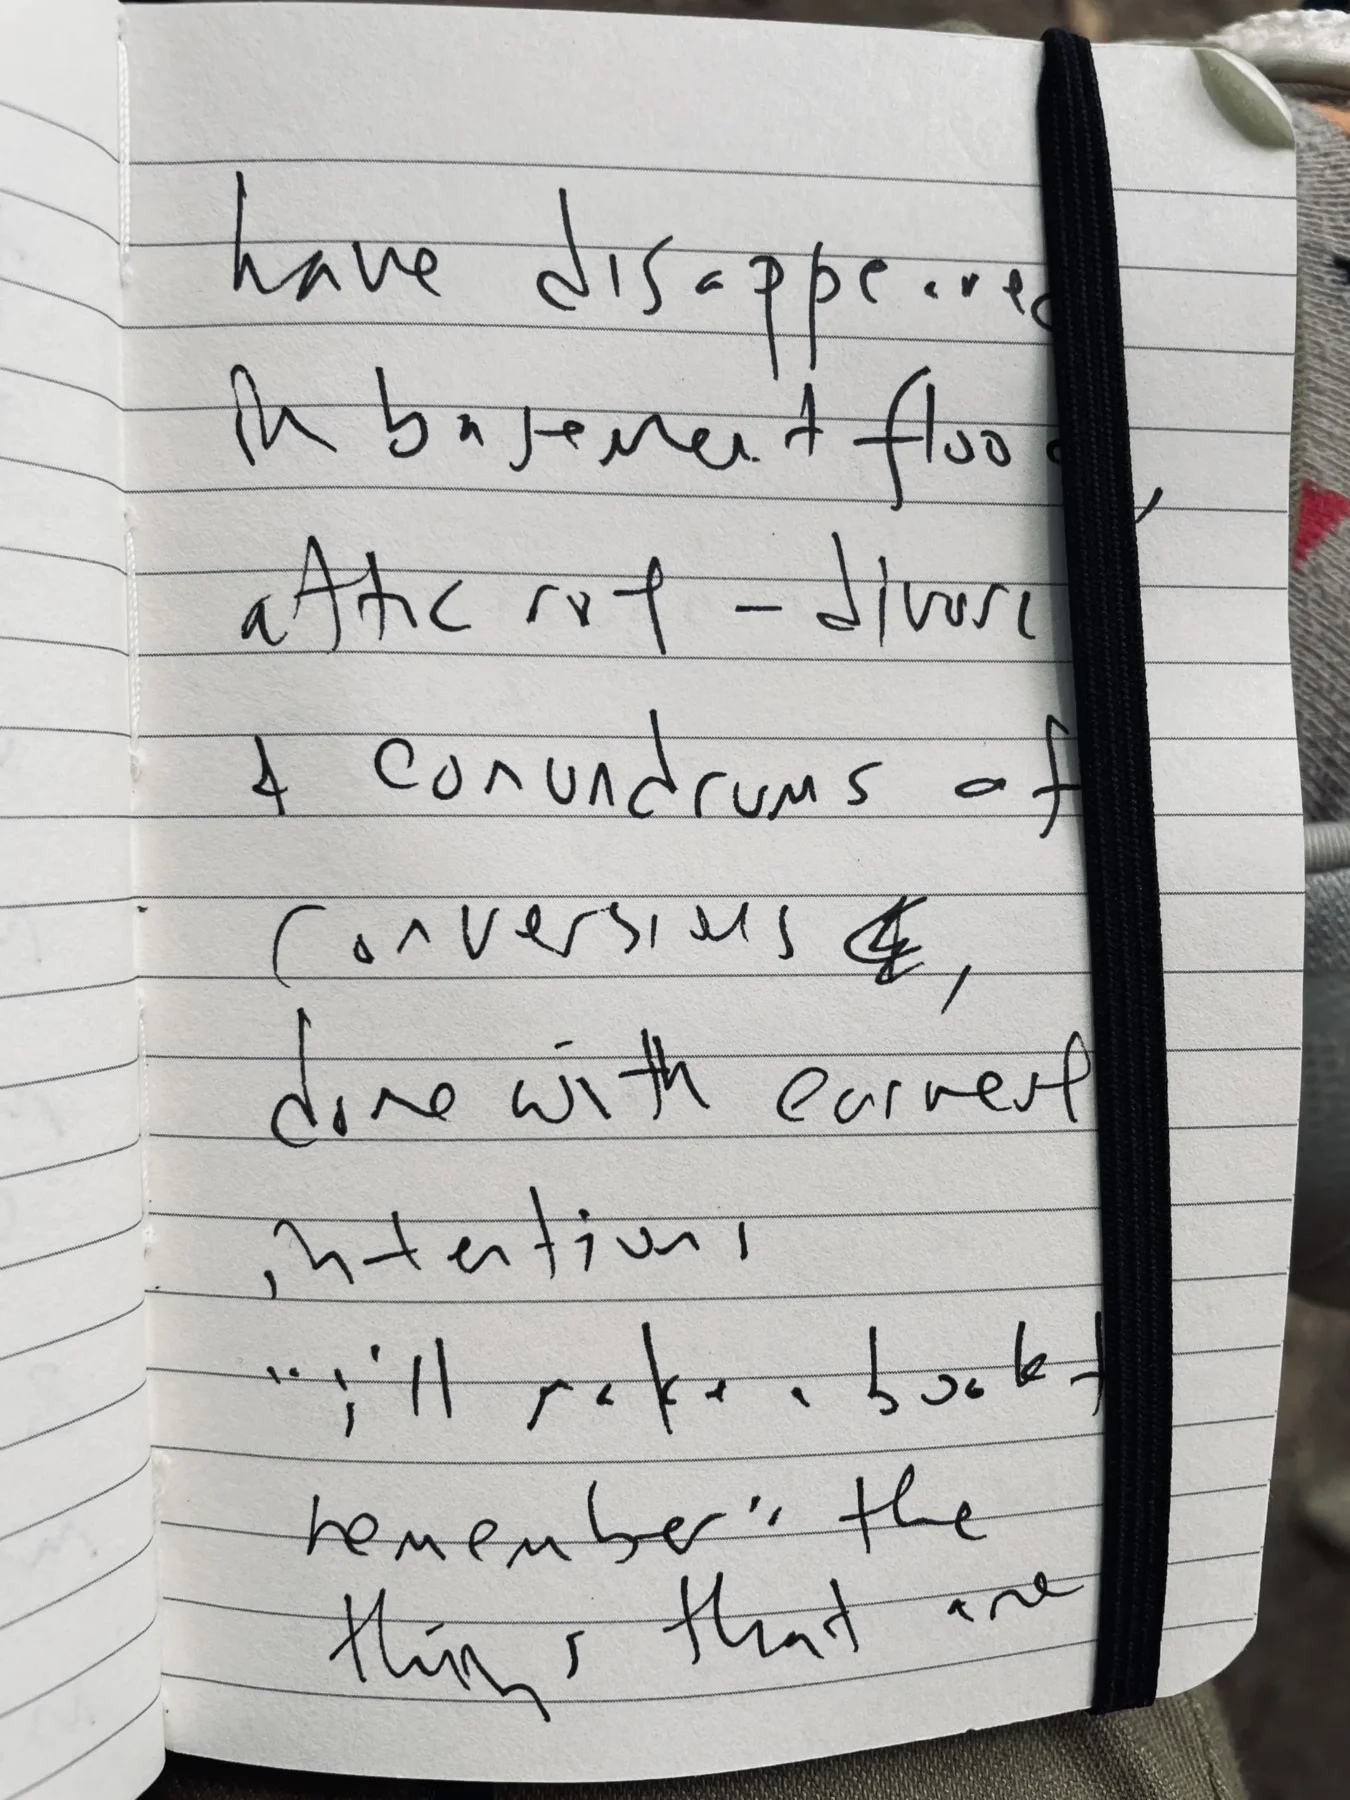 have disappeared
in basement flood,
attic rot – divorce
& conundrums of
conversions,
done with earnest
intentions
"i'll make a book t
remember" the
things that are